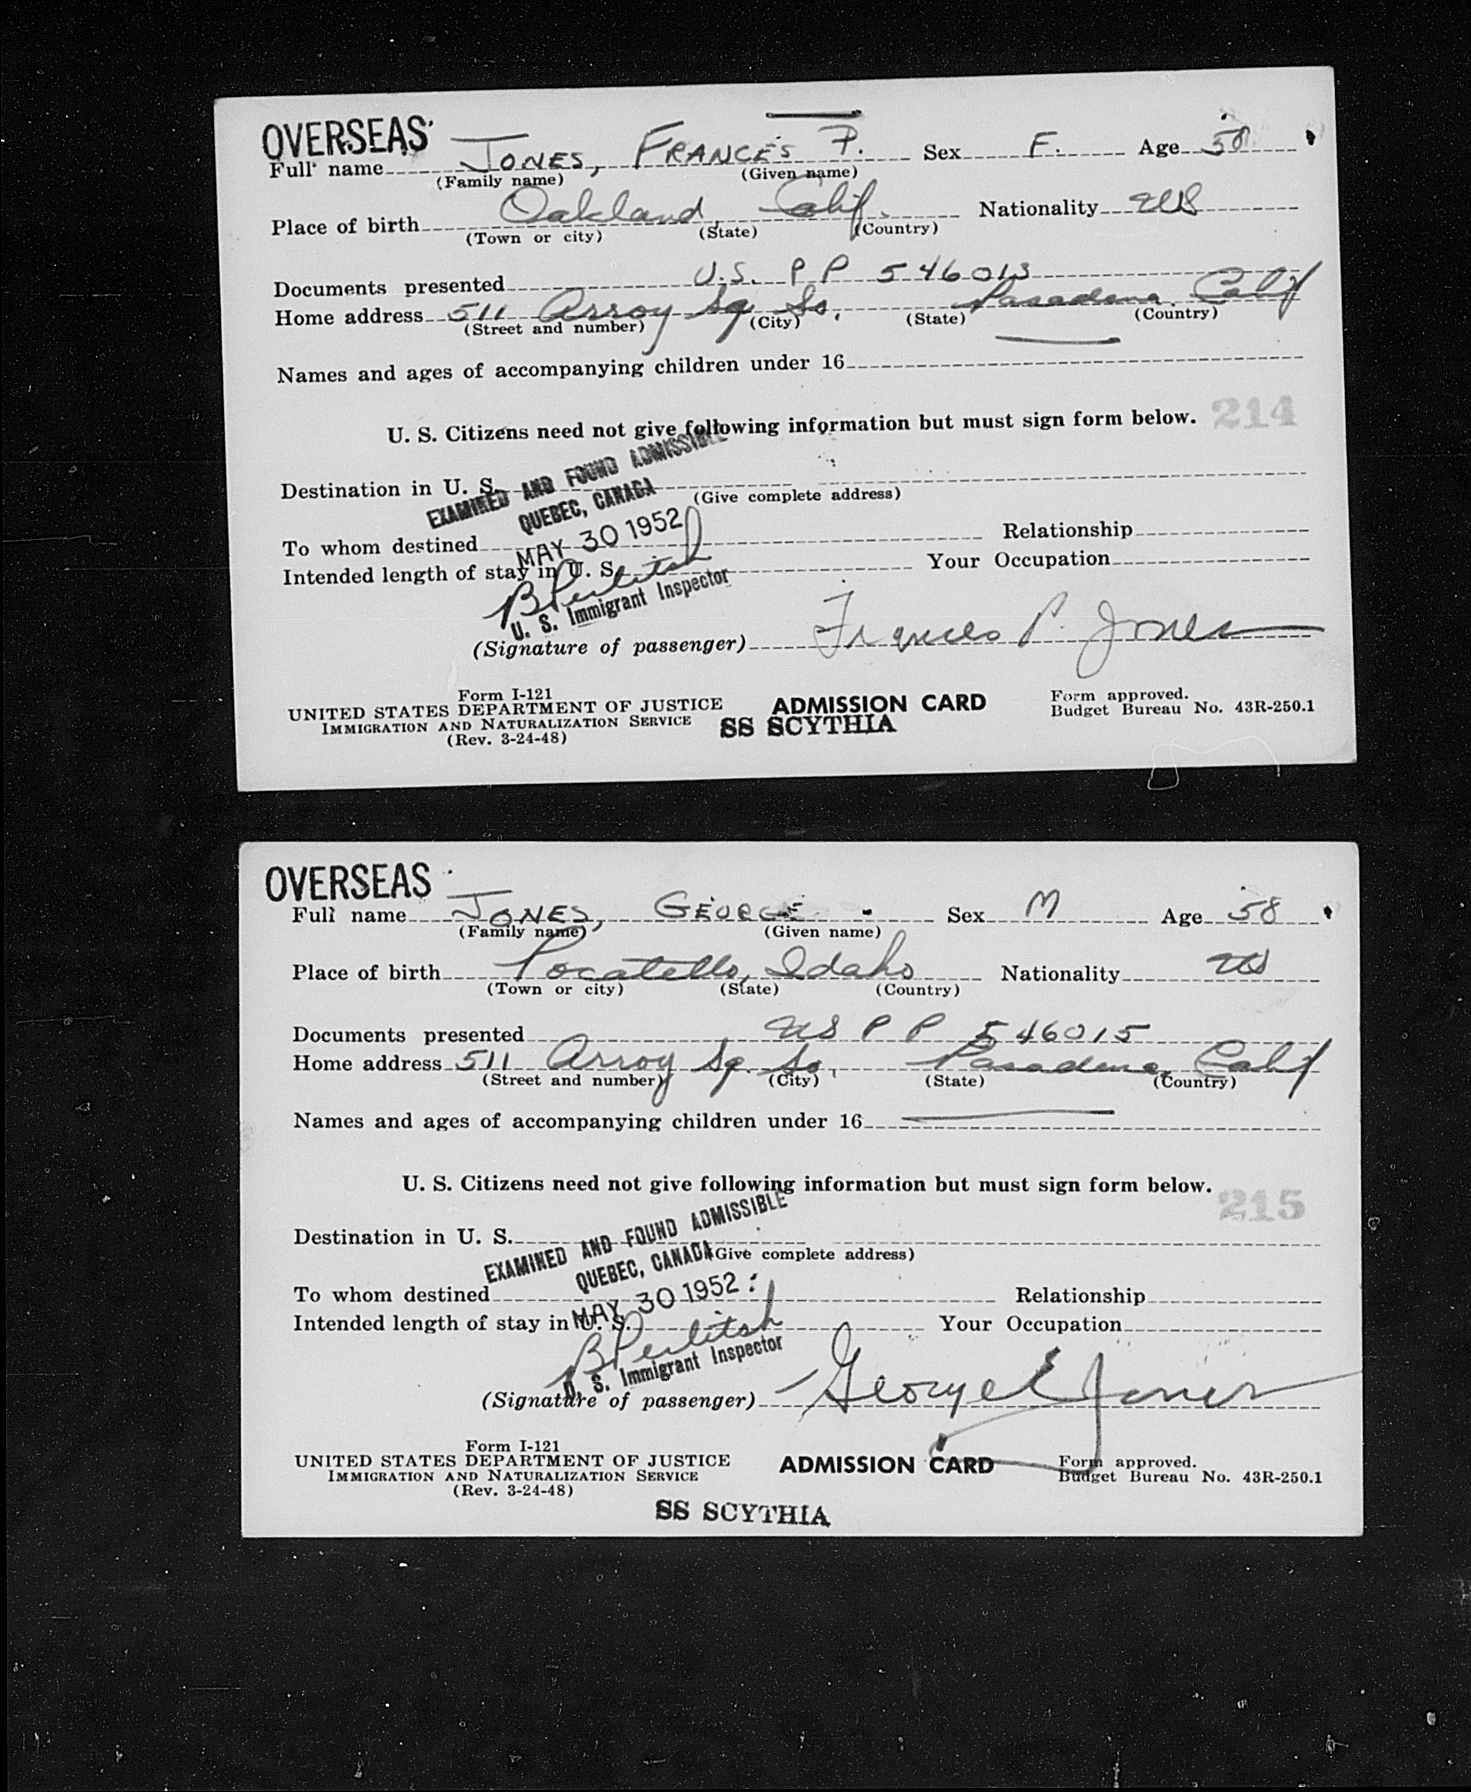 OVERSEAS
Full name JONES, FRANCES P. Sex F. Age 58
(Family name) (Given name)
Place of birth Oakland, Calif. Nationality US
(Town or city) (State) (Country)
Documents presented U.S. P P 546013
Home address 511 Arroy Sq So, Pasadena, Calif
(Street and number) (City) (State) (Country)
Names and ages of accompanying children under 16
U. S. Citizens need not give following information but must sign form below. 214
EXAMINED AND FOUND ADMISSIBLE
Destination in U. S.
QUEBEC, CANADA (Give complete address)
To whom destined Relationship
MAY 30 1952
Intended length of stay in U. S. Your Occupation
U. S. Immigrant Inspector
(Signature of passenger) Frances P. Jones
Form I-121
UNITED STATES DEPARTMENT OF JUSTICE ADMISSION CARD Form approved.
IMMIGRATION AND NATURALIZATION SERVICE SS SCYTHIA Budget Bureau No. 43R-250.1
(Rev. 3-24-48)
OVERSEAS
Full name JONES, GEORGE Sex M Age 58
(Family name) (Given name)
Place of birth Pocatello, Idaho Nationality US
(Town or city) (State) (Country)
Documents presented US P P 546015
Home address 511 Arroy Sq. So, Pasadena, Calif
(Street and number) (City) (State) (Country)
Names and ages of accompanying children under 16
U. S. Citizens need not give following information but must sign form below. 215
EXAMINED AND FOUND ADMISSIBLE
Destination in U. S.
QUEBEC, CANADA (Give complete address)
To whom destined Relationship
MAY 30 1952
Intended length of stay in U. S. Your Occupation
U. S. Immigrant Inspector
(Signature of passenger) George E Jones
Form I-121
UNITED STATES DEPARTMENT OF JUSTICE ADMISSION CARD Form approved.
IMMIGRATION AND NATURALIZATION SERVICE Budget Bureau No. 43R-250.1
(Rev. 3-24-48)
SS SCYTHIA